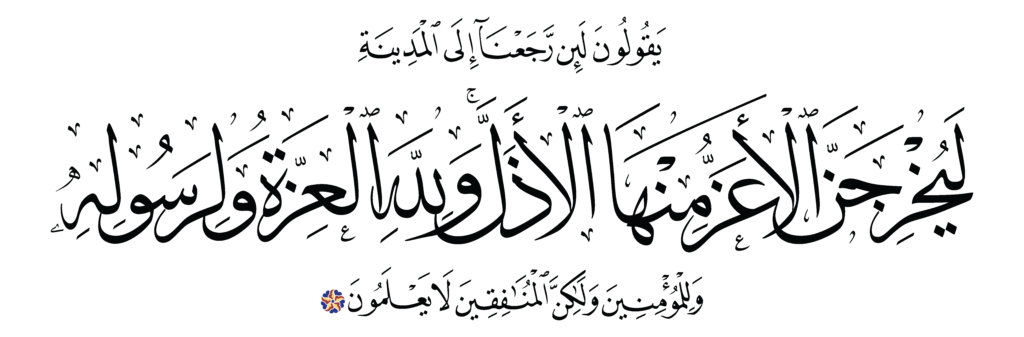 يَقُولُونَ لَئِن رَّجَعْنَآ إِلَى ٱلْمَدِينَةِ
لَيُخْرِجَنَّ ٱلْأَعَزُّ مِنْهَا ٱلْأَذَلَّ ۚ وَلِلَّهِ ٱلْعِزَّةُ وَلِرَسُولِهِۦ
وَلِلْمُؤْمِنِينَ وَلَٰكِنَّ ٱلْمُنَٰفِقِينَ لَا يَعْلَمُونَ